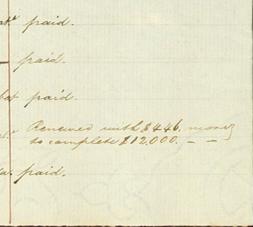 paid.
paid.
paid.
Renewed with $446, money
to complete $12,000. — —
paid.